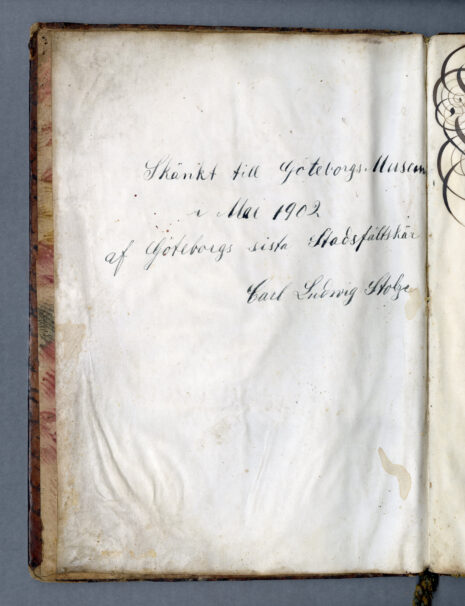 Skänkt till Göteborgs Museum
i Maj 1902
af Göteborgs sista Stadsfältskär
Carl Ludwig Stolze